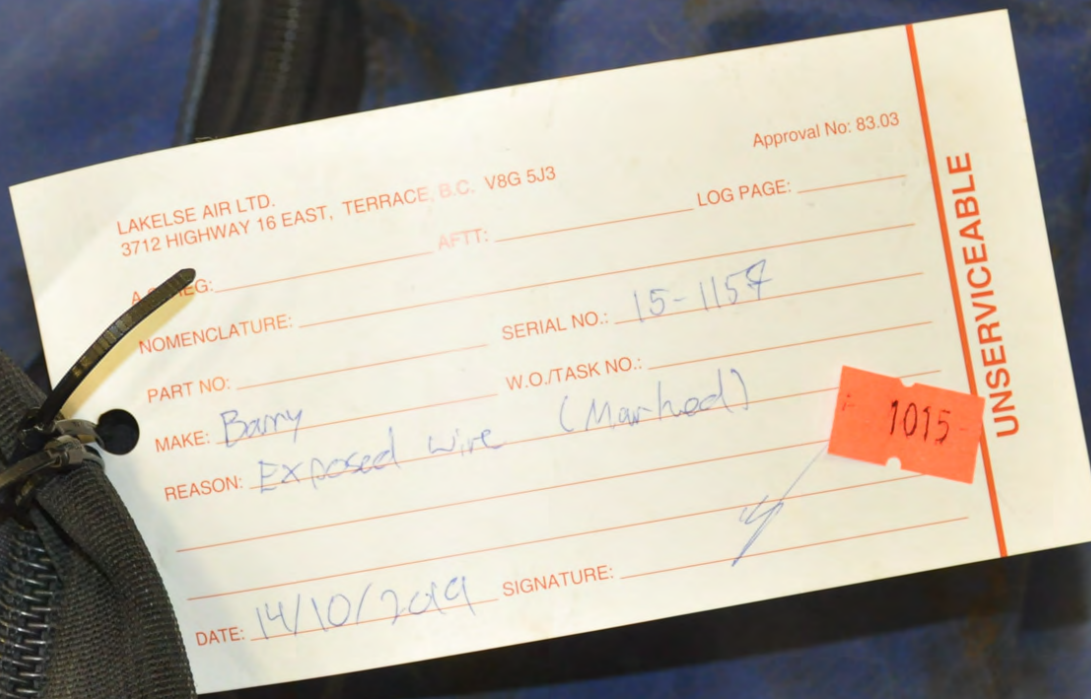 LAKELSE AIR LTD.
3712 HIGHWAY 16 EAST, TERRACE, B.C. V8G 5J3
Approval No: 83.03
AFTT: LOG PAGE:
NOMENCLATURE:
PART NO: SERIAL NO.: 15-1157
MAKE: Barry W.O./TASK NO.:
REASON: Exposed wire (Marked)
1015
DATE: 14/10/2019 SIGNATURE:
UNSERVICEABLE